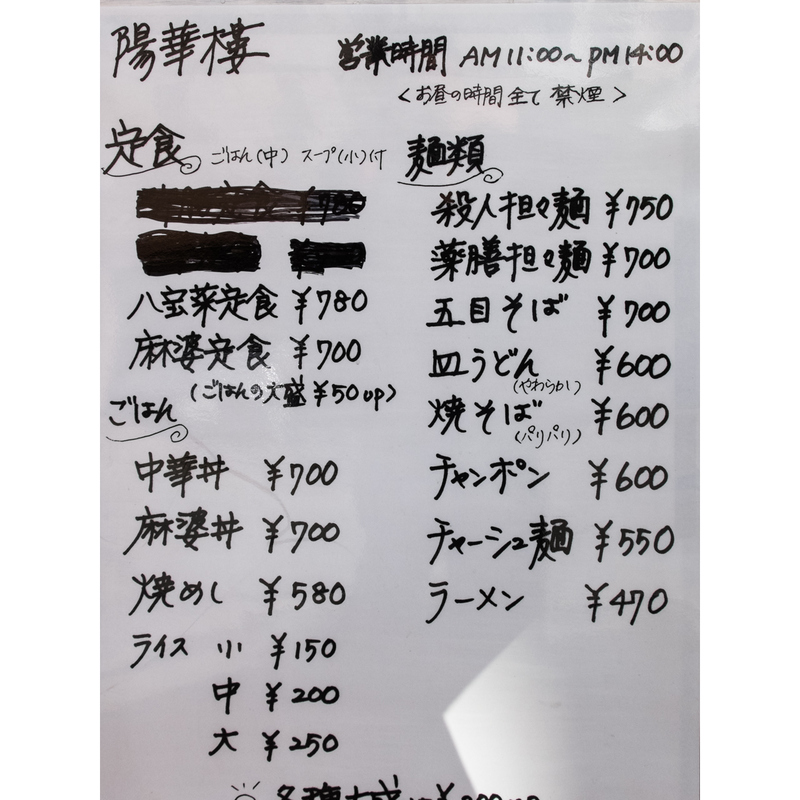 陽華楼
営業時間 AM11:00〜PM14:00
<お昼の時間全て 禁煙>
定食 ごはん(中) スープ(小)付
八宝菜定食 ¥780
麻婆定食 ¥700
(ごはんの大盛 ¥50up)
ごはん
中華丼 ¥700
麻婆丼 ¥700
焼めし ¥580
ライス 小 ¥150
中 ¥200
大 ¥250
麺類
殺人担々麺 ¥750
薬膳担々麺 ¥700
五目そば ¥700
皿うどん ¥600
(やわらかい)
焼そば ¥600
(パリパリ)
チャンポン ¥600
チャーシュー麺 ¥550
ラーメン ¥470